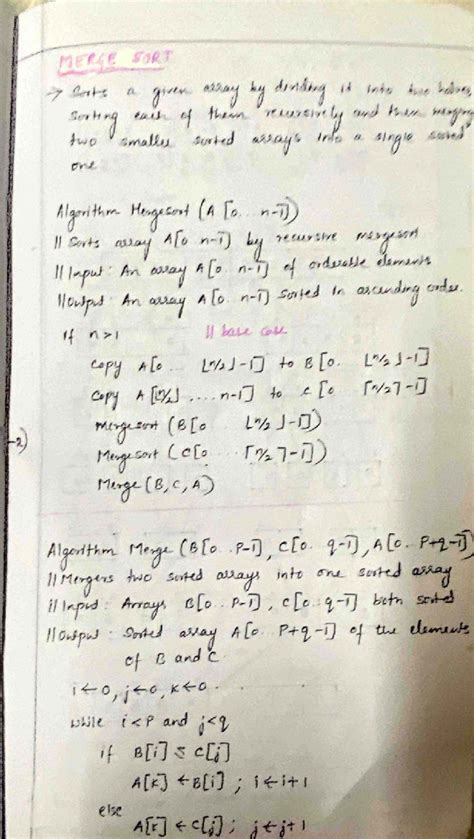 MERGE SORT
→ Sorts a given array by dividing it into two halves,
sorting each of them recursively and then merging
two smaller sorted arrays into a single sorted
one
Algorithm Mergesort (A [0... n-1])
// Sorts array A[0.. n-1] by recursive mergesort
// Input: An array A[0.. n-1] of orderable elements
// Output: An array A[0.. n-1] Sorted in ascending order.
if n>1 // base case
copy A[0... ⌊n/2⌋-1] to B[0.. ⌊n/2⌋-1]
copy A[⌊n/2⌋ .... n-1] to C[0.. ⌈n/2⌉-1]
mergesort (B[0.. ⌊n/2⌋-1])
Mergesort (C[0... ⌈n/2⌉-1])
Merge (B, C, A)
-2)
Algorithm Merge (B[0.. P-1], C[0.. q-1], A[0.. P+q-1])
// Mergers two sorted arrays into one sorted array
// Input: Arrays B[0.. P-1], C[0..q-1] both sorted
// Output: Sorted array A[0.. P+q-1] of the elements
of B and C.
i←0, j←0, K←0
while i<P and j<q
if B[i] ≤ C[j]
A[K] ←B[i]; i←i+1
else
A[K] ← C[j]; j←j+1